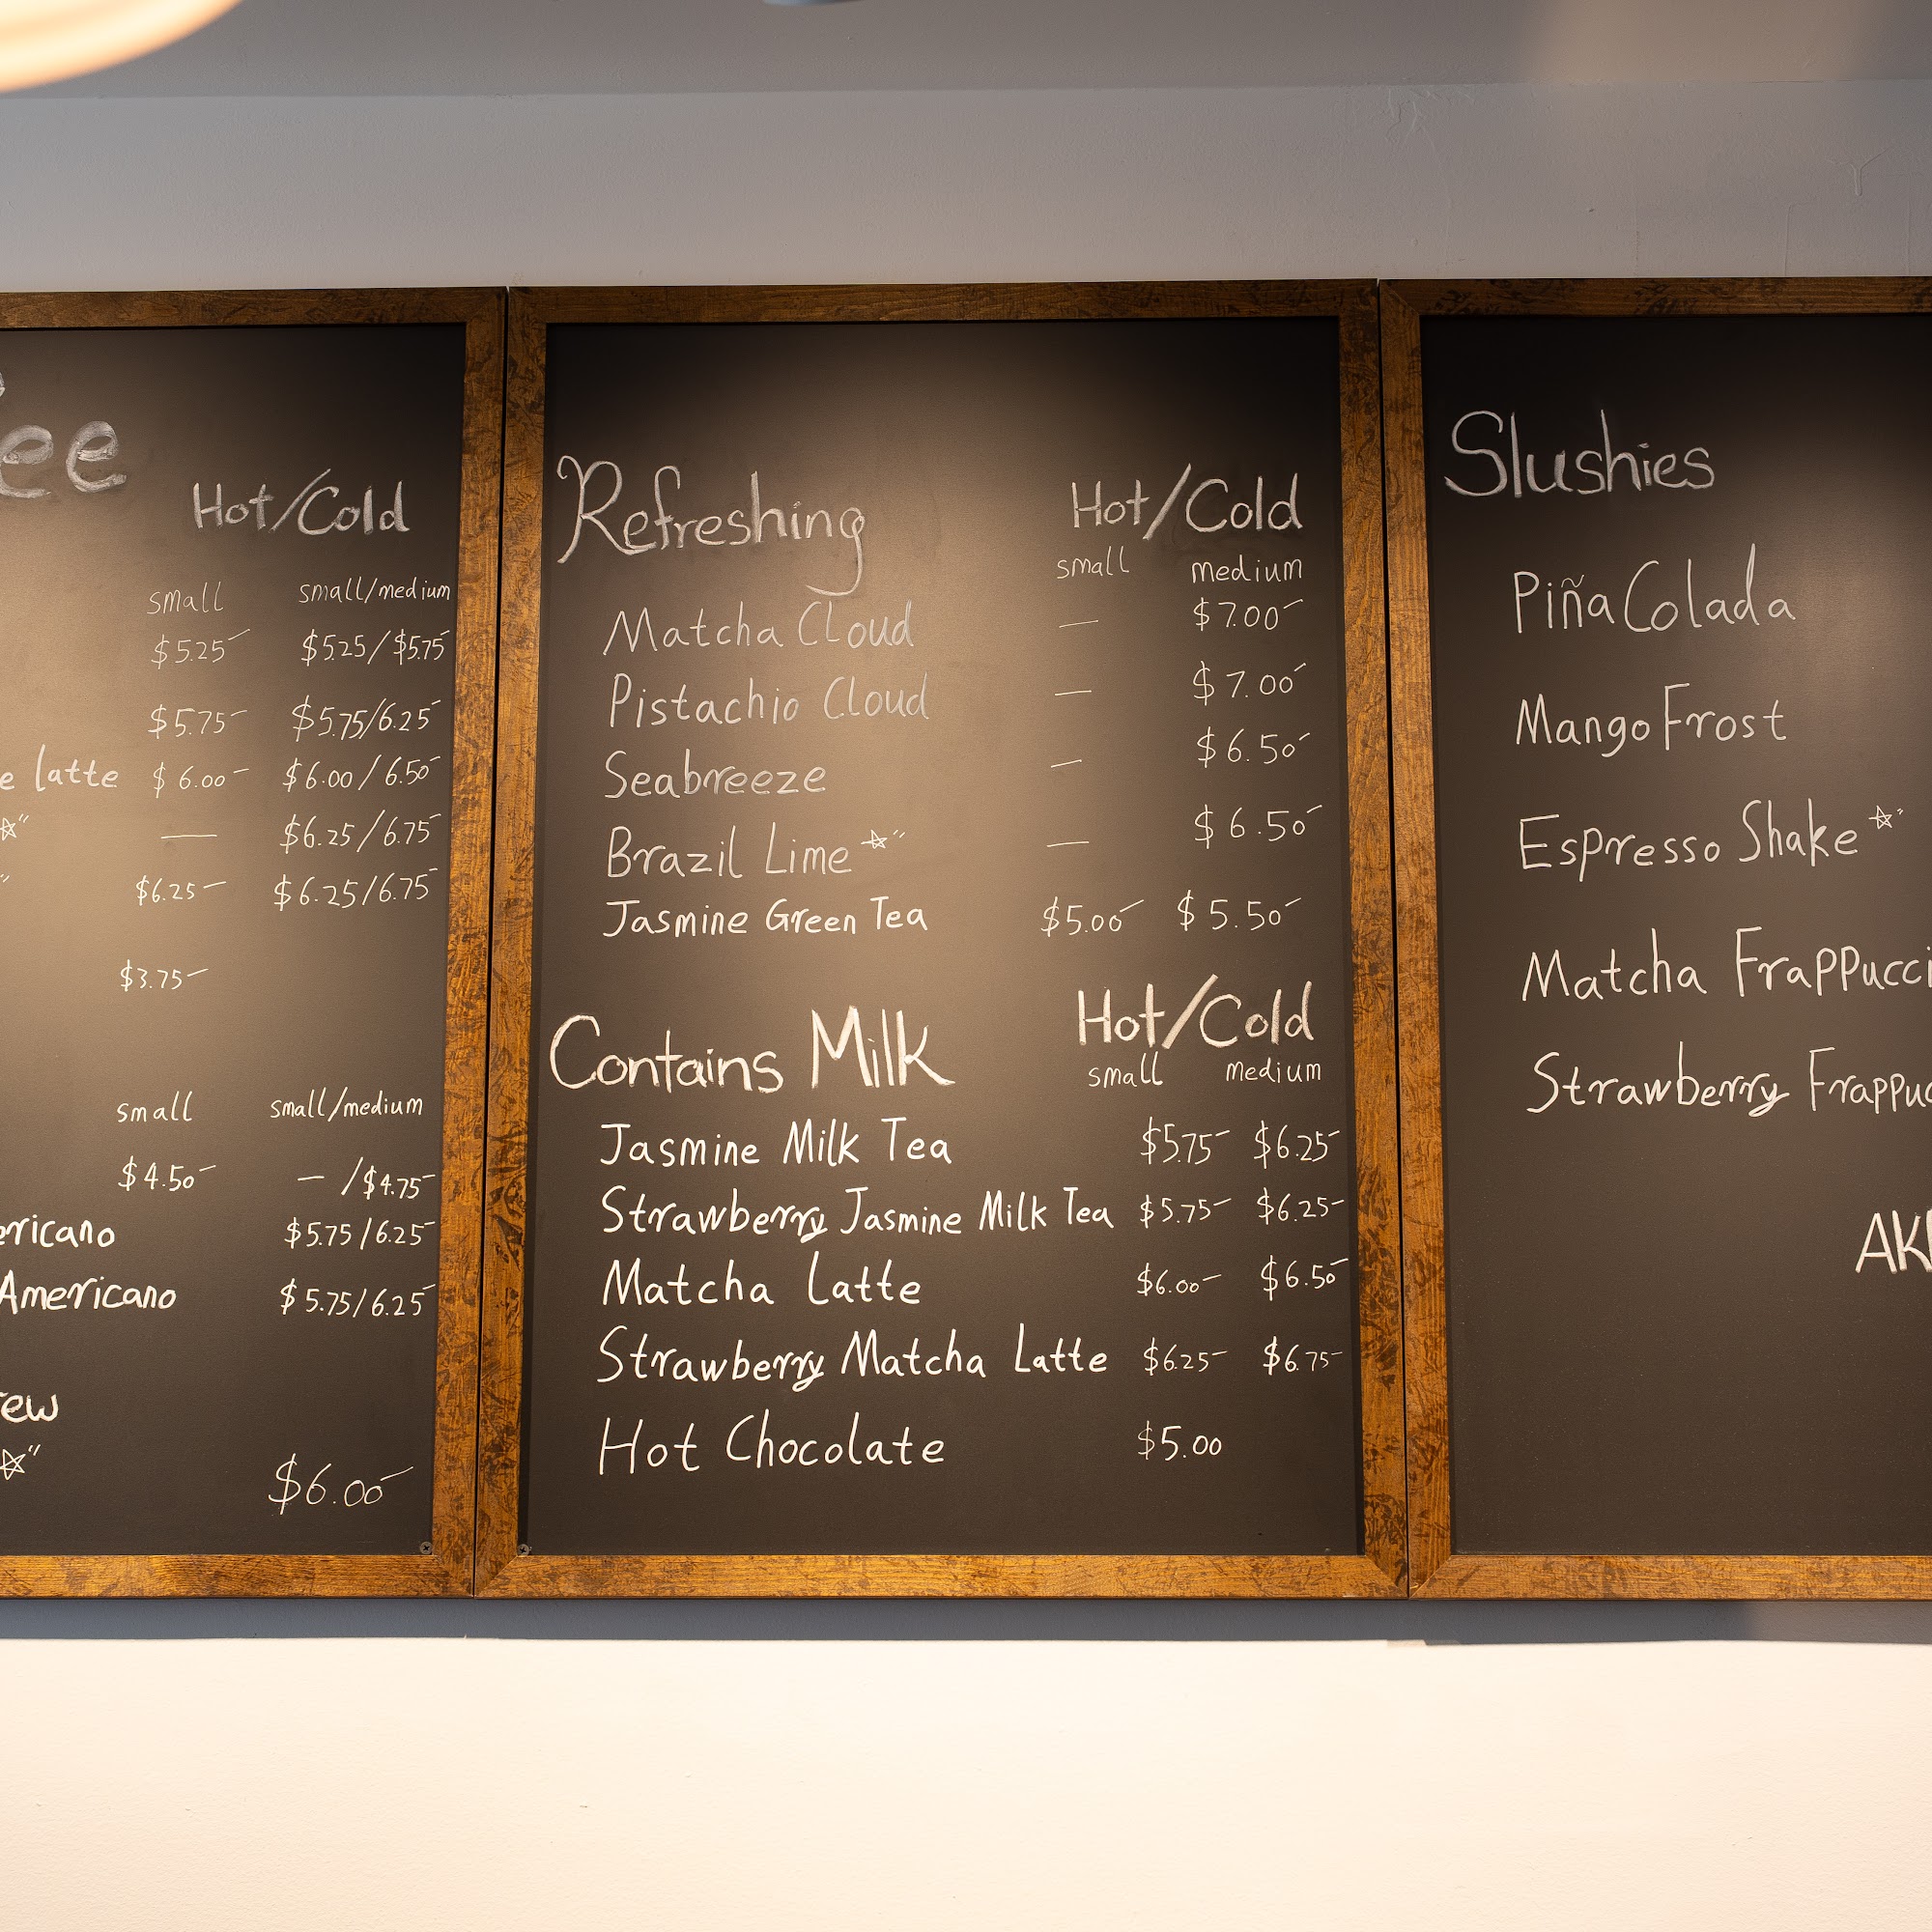 Hot/Cold
small small/medium
$5.25 $5.25/$5.75
$5.75 $5.75/6.25
latte $6.00 $6.00/6.50
— $6.25/6.75
$6.25 $6.25/6.75
$3.75
small small/medium
$4.50 — /$4.75
$5.75/6.25
Americano $5.75/6.25
$6.00
Refreshing Hot/Cold
small medium
Matcha Cloud — $7.00
Pistachio Cloud — $7.00
Seabreeze — $6.50
Brazil Lime ☆" — $6.50
Jasmine Green Tea $5.00 $5.50
Contains Milk Hot/Cold
small medium
Jasmine Milk Tea $5.75 $6.25
Strawberry Jasmine Milk Tea $5.75 $6.25
Matcha Latte $6.00 $6.50
Strawberry Matcha Latte $6.25 $6.75
Hot Chocolate $5.00
Slushies
Piña Colada
Mango Frost
Espresso Shake ☆"
Matcha
Strawberry